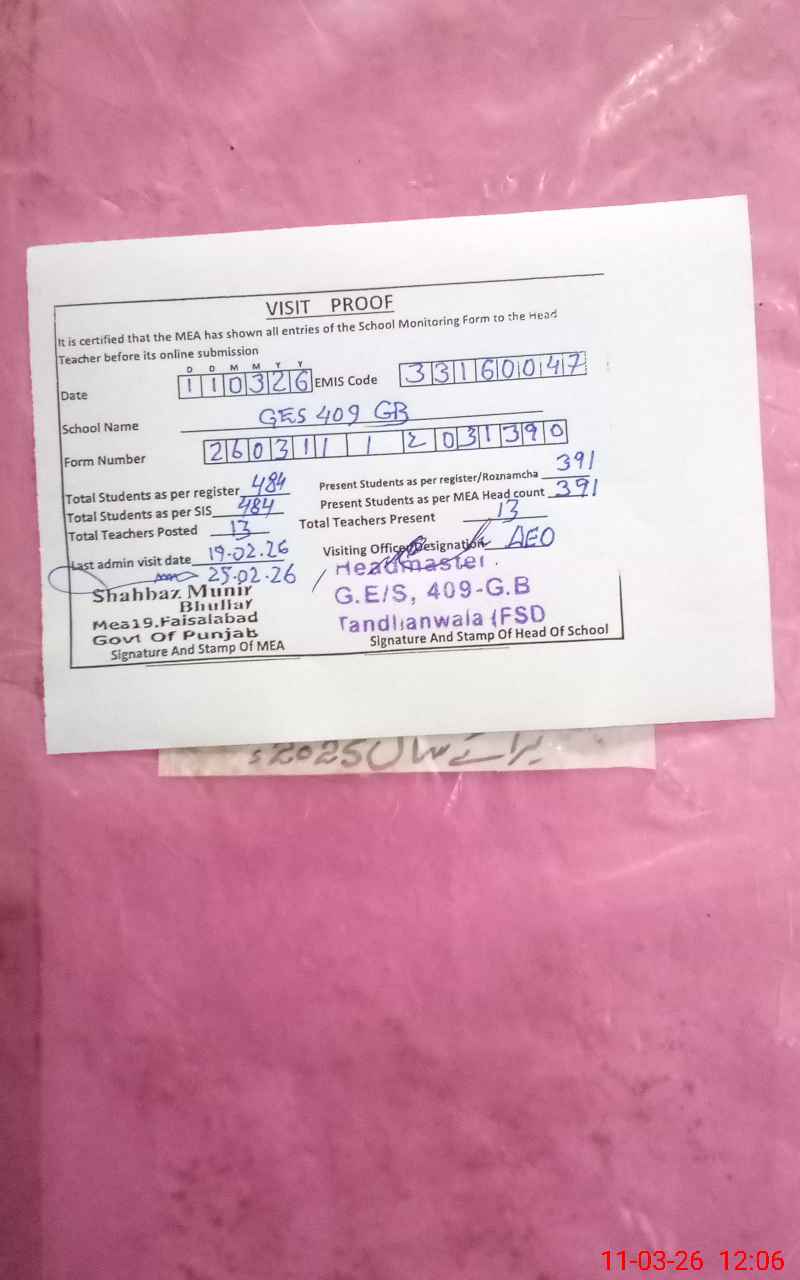 VISIT PROOF
It is certified that the MEA has shown all entries of the School Monitoring Form to the Head
Teacher before its online submission
D D M M Y Y
Date 110326 EMIS Code 33160047
School Name GES 409 GB
Form Number 260311 1 2031390
Total Students as per register 484 Present Students as per register/Roznamcha 391
Total Students as per SIS 484 Present Students as per MEA Head count 391
Total Teachers Posted 13 Total Teachers Present 13
Last admin visit date 19.02.26 Visiting Officer Designation AEO
25.02.26
Shahbaz Munir
Bhullar
Mea19.Faisalabad
Govt Of Punjab
Signature And Stamp Of MEA
Headmaster
G.E/S, 409-G.B
Tandlianwala (FSD
Signature And Stamp Of Head Of School
برائے سال 2025ء
11-03-26 12:06